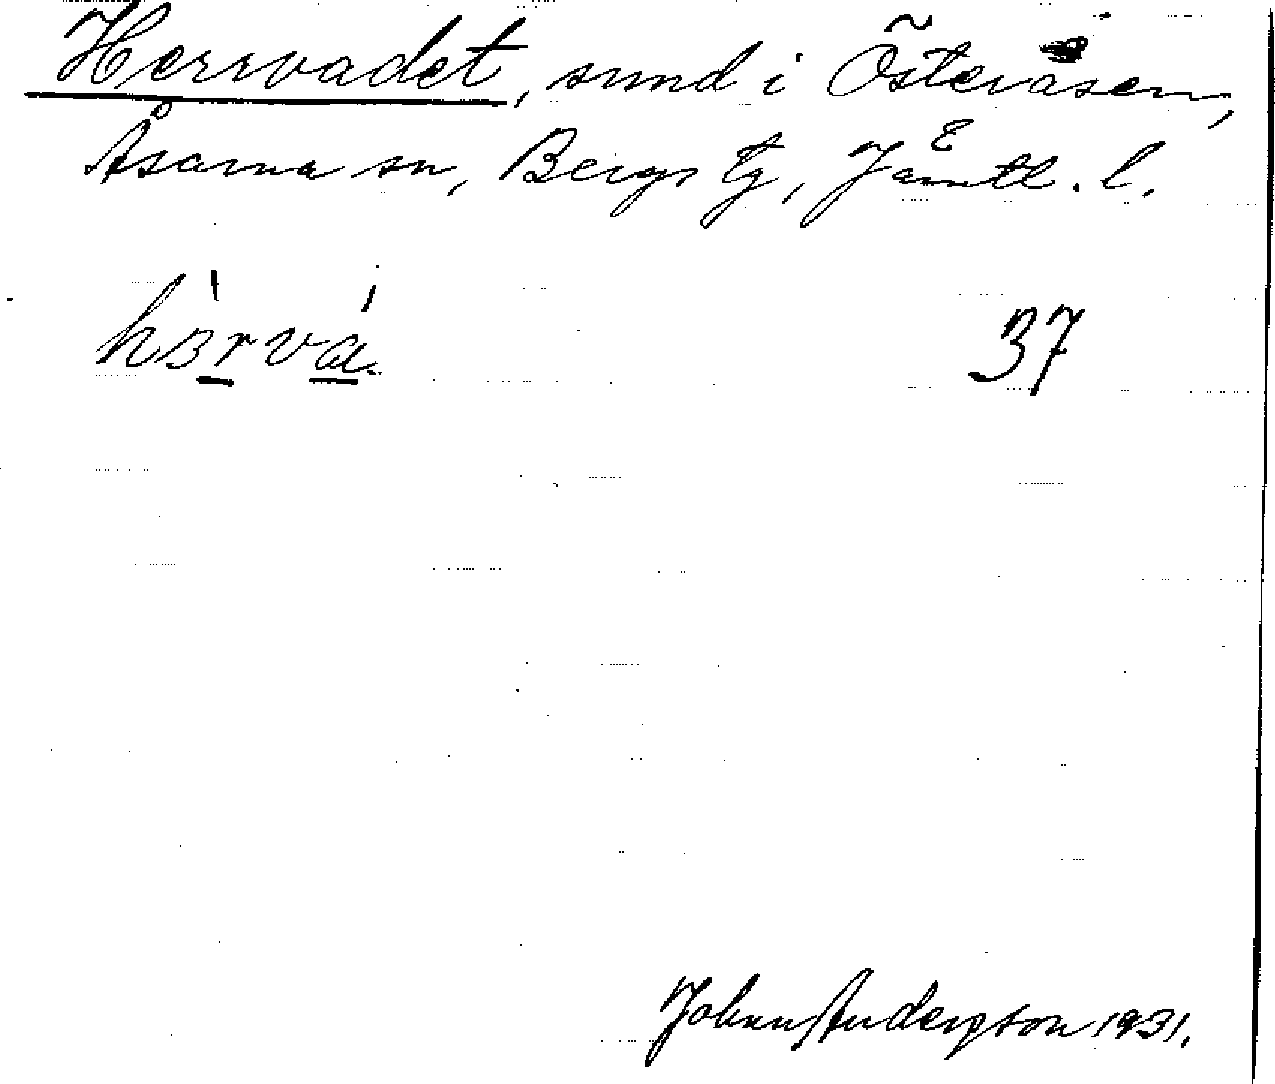 Herrvadet, sund i Österåsen,
Åsarna sn, Bergs tg, Jämtl. l.
37
Johan Andersson 1931.